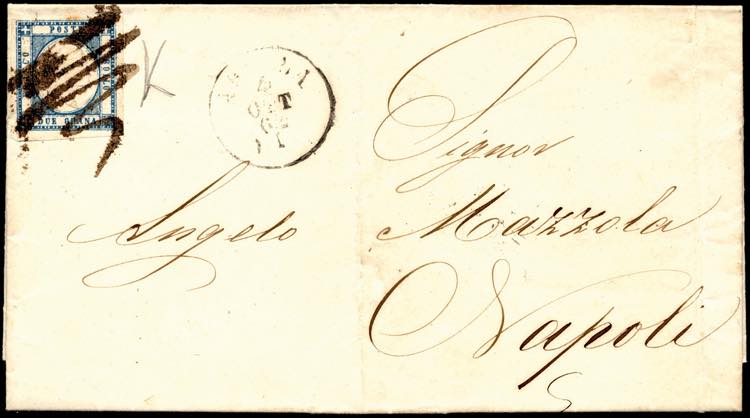 POSTA
DUE GRANA
K
Signor
Angelo Mazzola
Napoli